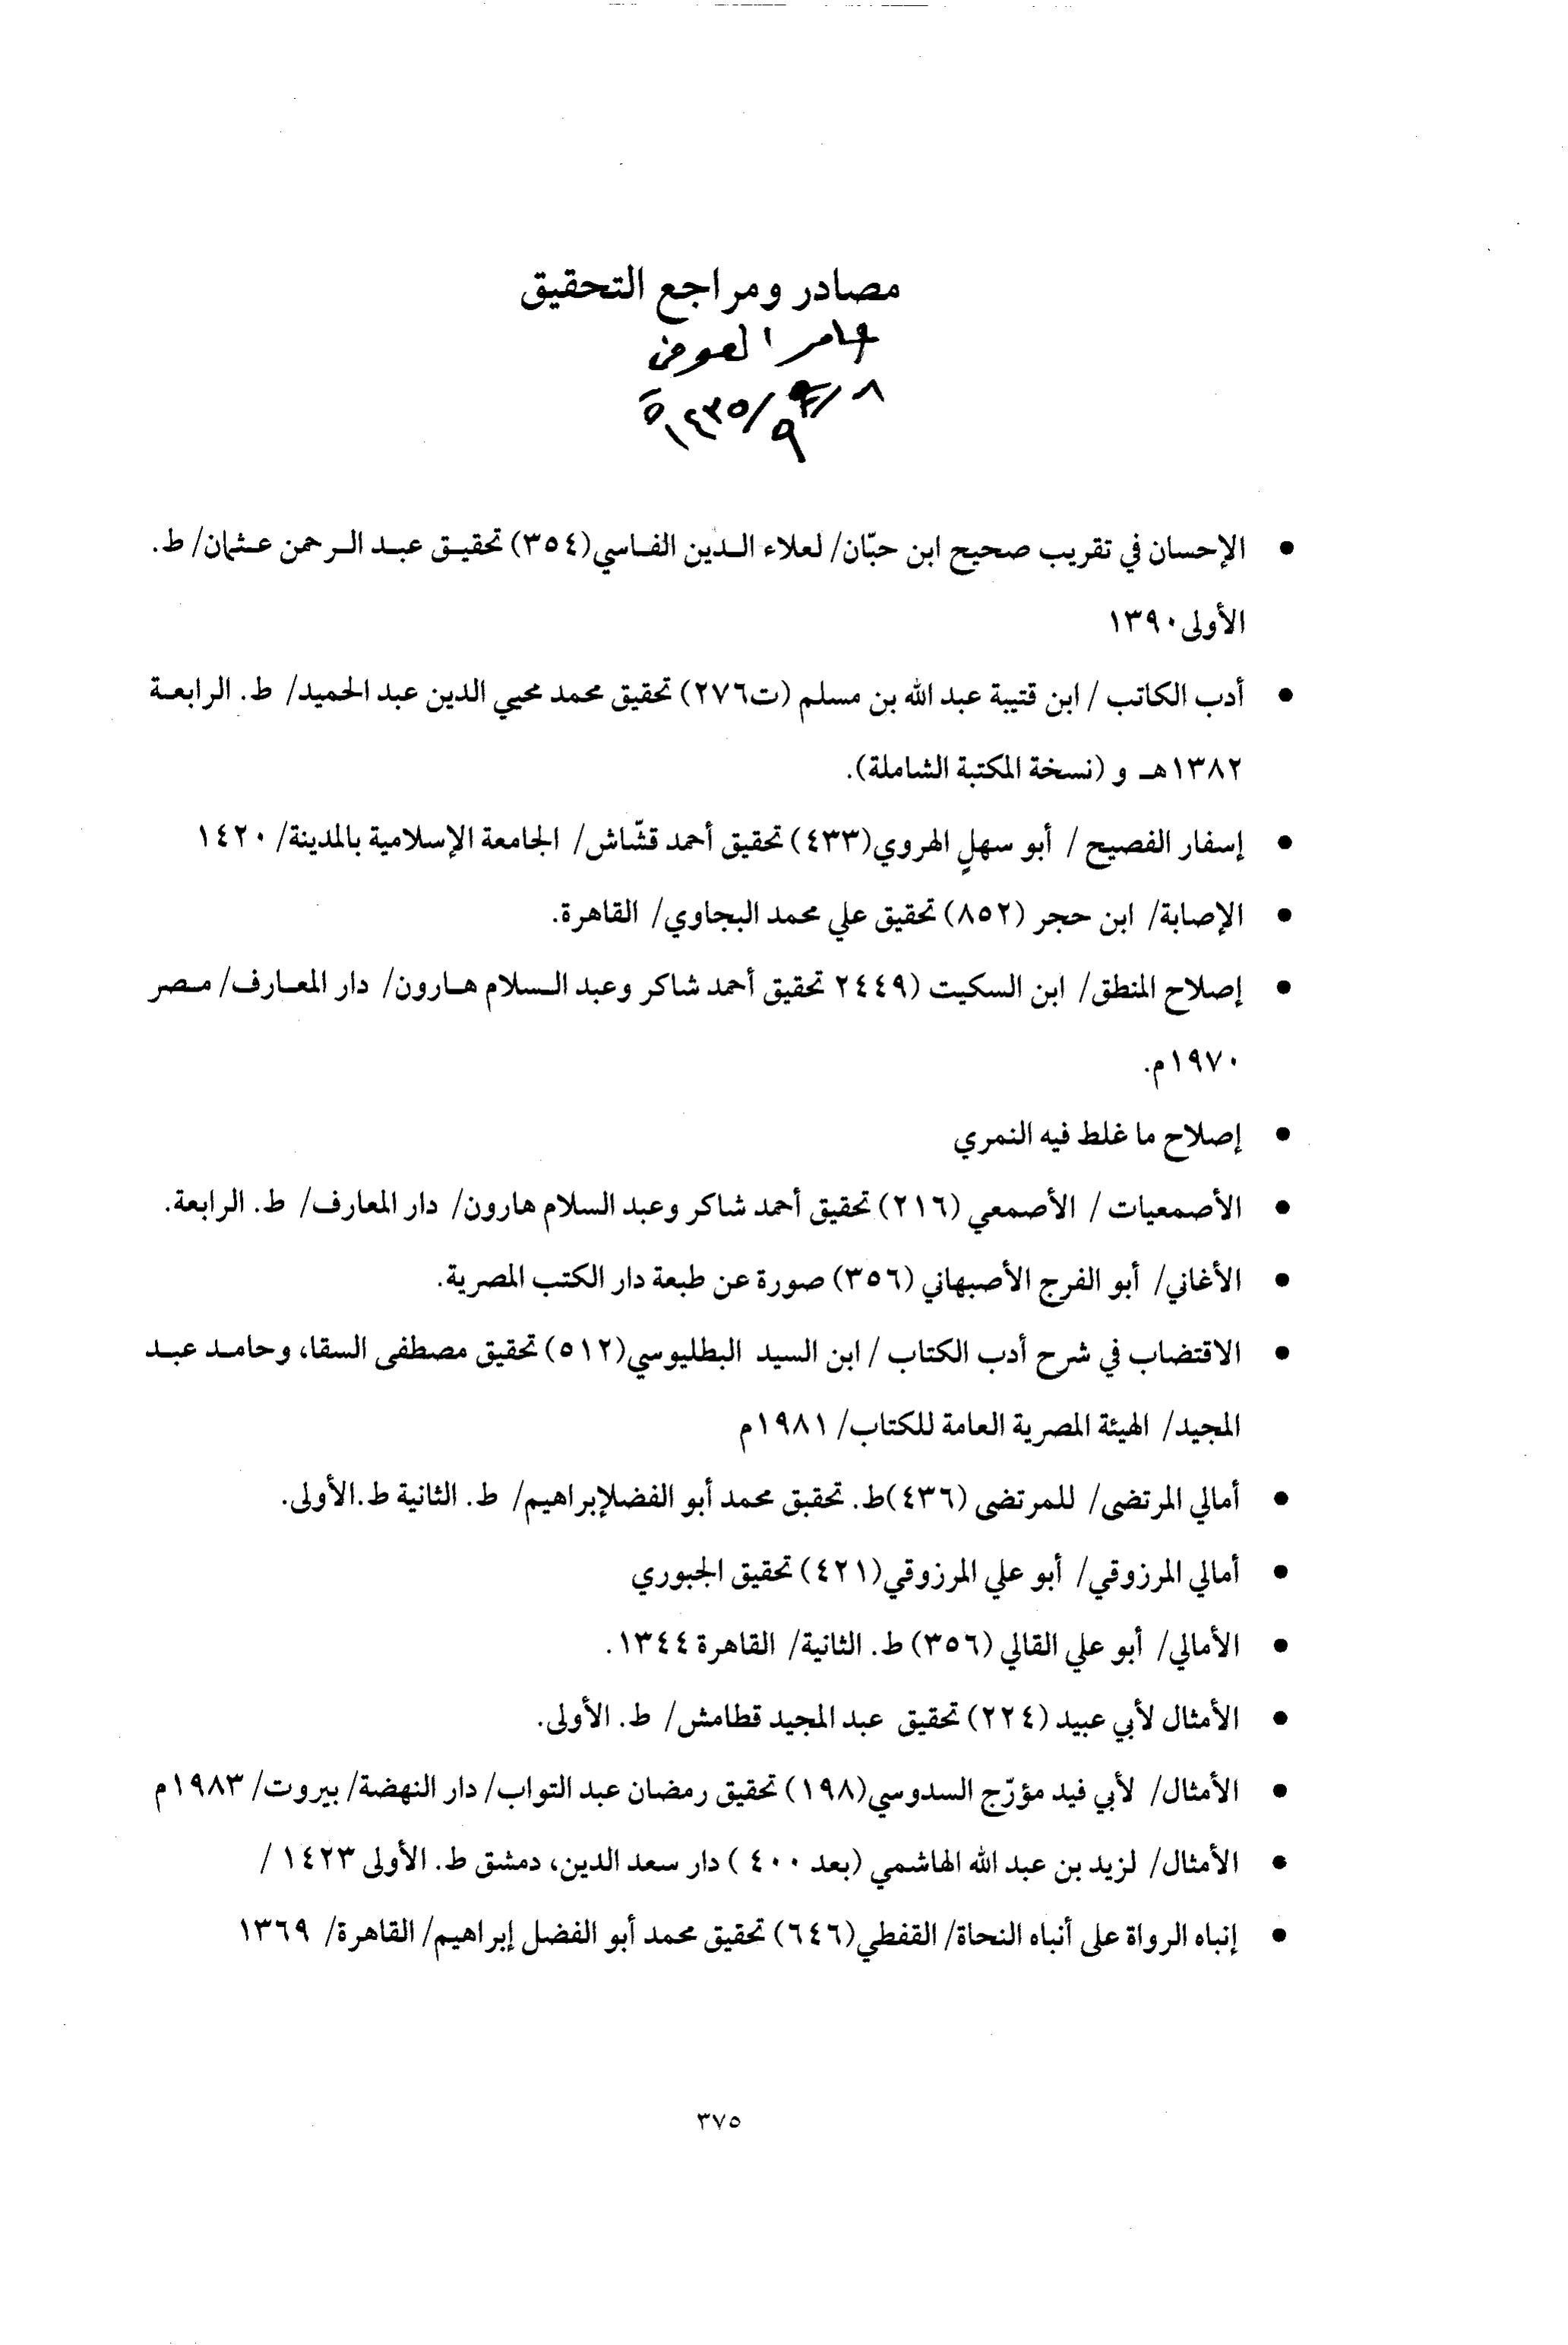 مصادر ومراجع التحقيق
عامر العوفي
٨/٩/١٤٣٥هـ
• الإحسان في تقريب صحيح ابن حبّان/ لعلاء الدين الفاسي(٣٥٤) تحقيق عبد الرحمن عثمان/ ط.
الأولى١٣٩٠
• أدب الكاتب / ابن قتيبة عبد الله بن مسلم (ت٢٧٦) تحقيق محمد محيي الدين عبد الحميد/ ط. الرابعة
١٣٨٢هـ و (نسخة المكتبة الشاملة).
• إسفار الفصيح / أبو سهلٍ الهروي(٤٣٣) تحقيق أحمد قشّاش/ الجامعة الإسلامية بالمدينة/ ١٤٢٠
• الإصابة/ ابن حجر (٨٥٢) تحقيق علي محمد البجاوي/ القاهرة.
• إصلاح المنطق/ ابن السكيت (٢٤٤٩ تحقيق أحمد شاكر وعبد السلام هارون/ دار المعارف/ مصر
١٩٧٠م.
• إصلاح ما غلط فيه النمري
• الأصمعيات / الأصمعي (٢١٦) تحقيق أحمد شاكر وعبد السلام هارون/ دار المعارف/ ط. الرابعة.
• الأغاني/ أبو الفرج الأصبهاني (٣٥٦) صورة عن طبعة دار الكتب المصرية.
• الاقتضاب في شرح أدب الكتاب / ابن السيد البطليوسي(٥١٢) تحقيق مصطفى السقا، وحامد عبد
المجيد/ الهيئة المصرية العامة للكتاب/ ١٩٨١م
• أمالي المرتضى/ للمرتضى (٤٣٦)ط. تحقبق محمد أبو الفضلإبراهيم/ ط. الثانية ط.الأولى.
• أمالي المرزوقي/ أبو علي المرزوقي(٤٢١) تحقيق الجبوري
• الأمالي/ أبو علي القالي (٣٥٦) ط. الثانية/ القاهرة ١٣٤٤.
• الأمثال لأبي عبيد (٢٢٤) تحقيق عبد المجيد قطامش/ ط. الأولى.
• الأمثال/ لأبي فيد مؤرّج السدوسي(١٩٨) تحقيق رمضان عبد التواب/ دار النهضة/ بيروت/ ١٩٨٣م
• الأمثال/ لزيد بن عبد الله الهاشمي (بعد ٤٠٠ ) دار سعد الدين، دمشق ط. الأولى ١٤٢٣ /
• إنباه الرواة على أنباه النحاة/ القفطي(٦٤٦) تحقيق محمد أبو الفضل إبراهيم/ القاهرة/ ١٣٦٩
٣٧٥